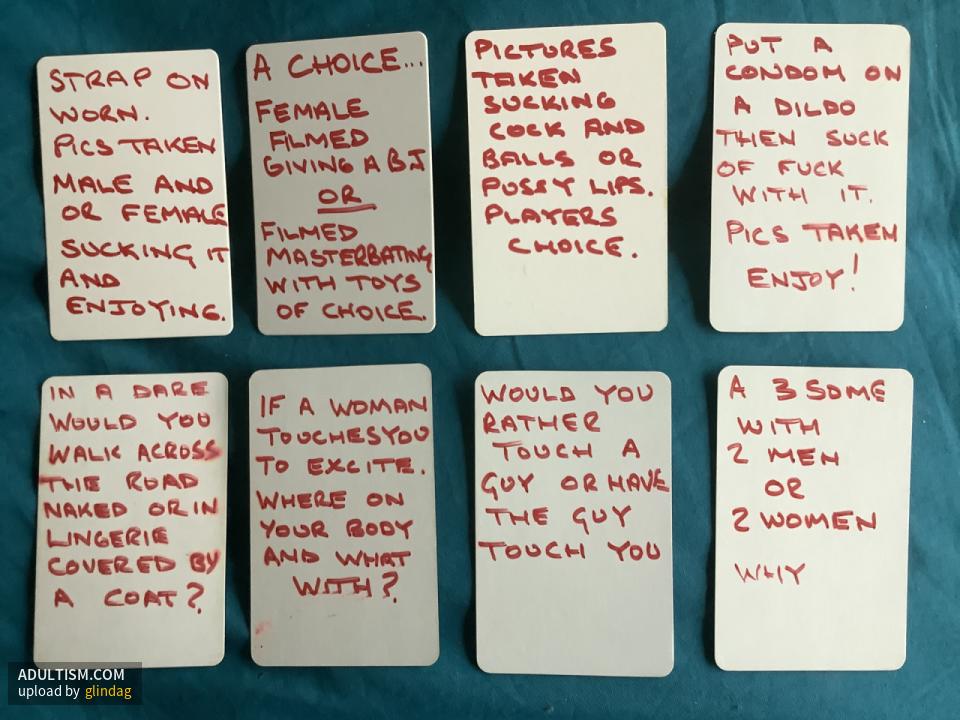 STRAP ON
WORN.
PICS TAKEN
MALE AND
OR FEMALE
SUCKING IT
AND
ENJOYING.
A CHOICE...
FEMALE
FILMED
GIVING A BJ
OR
FILMED
MASTERBATING
WITH TOYS
OF CHOICE.
PICTURES
TAKEN
SUCKING
COCK AND
BALLS OR
PUSSY LIPS.
PLAYERS
CHOICE.
PUT A
CONDOM ON
A DILDO
THEN SUCK
OF FUCK
WITH IT.
PICS TAKEN
ENJOY!
IN A DARE
WOULD YOU
WALK ACROSS
THE ROAD
NAKED OR IN
LINGERIE
COVERED BY
A COAT?
IF A WOMAN
TOUCHES YOU
TO EXCITE.
WHERE ON
YOUR BODY
AND WHAT
WITH?
WOULD YOU
RATHER
TOUCH A
GUY OR HAVE
THE GUY
TOUCH YOU
A 3 SOME
WITH
2 MEN
OR
2 WOMEN
WHY
ADULTISM.COM
upload by glindag